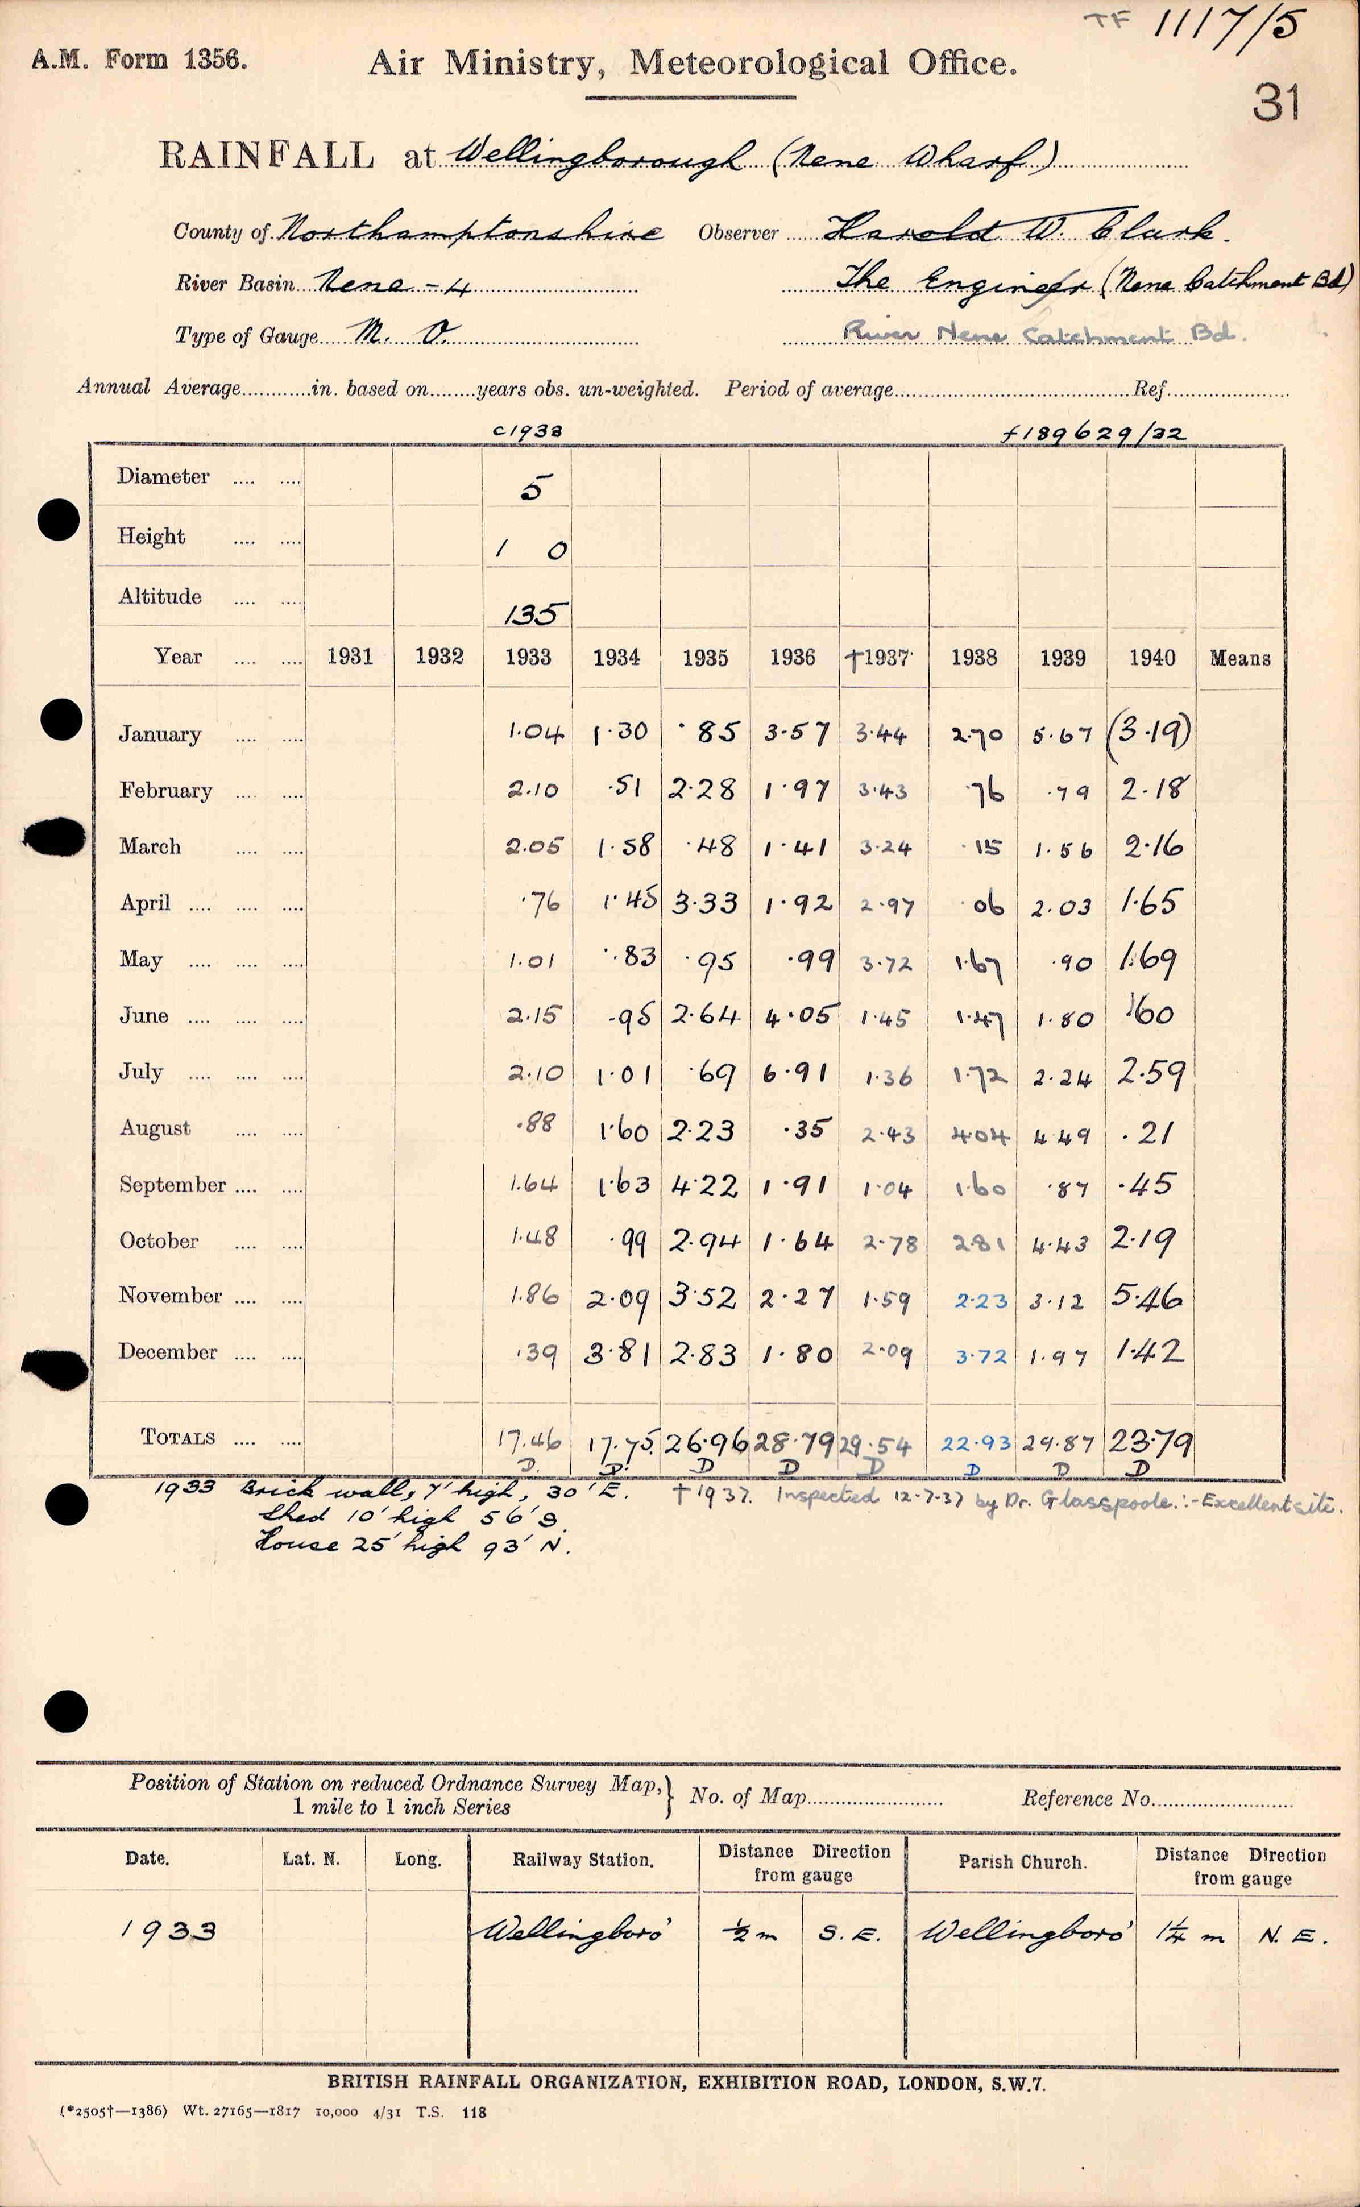 TF 1117/5
A.M. Form 1356. Air Ministry, Meteorological Office.
31
RAINFALL at Wellingborough (Nene Wharf)
County of Northamptonshire Observer Harold W. Clark.
River Basin Nene - 4 The Engineer (Nene Catchment Bd)
Type of Gauge M. O. River Nene Catchment Bd.
Annual Average............in. based on........years obs. un-weighted. Period of average........................................Ref.....................
c1933 f189629/32
Diameter .... .... 5
Height .... .... 1 0
Altitude .... .... 135
Year .... .... 1931 1932 1933 1934 1935 1936 †1937 1938 1939 1940 Means
January .... .... 1.04 1.30 .85 3.57 3.44 2.70 5.67 (3.19)
February .... .... 2.10 .51 2.28 1.97 3.43 .76 .79 2.18
March .... .... 2.05 1.58 .48 1.41 3.24 .15 1.56 2.16
April .... .... .... .76 1.45 3.33 1.92 2.97 .06 2.03 1.65
May .... .... .... 1.01 .83 .95 .99 3.72 1.67 .90 1.69
June .... .... .... 2.15 .95 2.64 4.05 1.45 1.47 1.80 .60
July .... .... .... 2.10 1.01 .69 6.91 1.36 1.72 2.24 2.59
August .... .... .88 1.60 2.23 .35 2.43 4.04 4.49 .21
September .... .... 1.64 1.63 4.22 1.91 1.04 1.60 .87 .45
October .... .... 1.48 .99 2.94 1.64 2.78 2.81 4.43 2.19
November .... .... 1.86 2.09 3.52 2.27 1.59 2.23 3.12 5.46
December .... .... .39 3.81 2.83 1.80 2.09 3.72 1.97 1.42
TOTALS .... .... 17.46 17.75 26.96 28.79 29.54 22.93 29.87 23.79
D. D. D D D D D D
1933 Brick wall, 7' high, 30' E. † 1937. Inspected 12-7-37 by Dr. Glasspoole :- Excellent site.
Shed 10' high 56' S.
House 25' high 93' N.
Position of Station on reduced Ordnance Survey Map, } No. of Map........................ Reference No.........................
1 mile to 1 inch Series
Date. Lat. N. Long. Railway Station. Distance Direction from gauge Parish Church. Distance Direction from gauge
1933 Wellingboro' ½ m S. E. Wellingboro' 1¼ m N. E.
BRITISH RAINFALL ORGANIZATION, EXHIBITION ROAD, LONDON, S.W.7.
(*2505†—1386) Wt. 27165—1817 10,000 4/31 T.S. 118